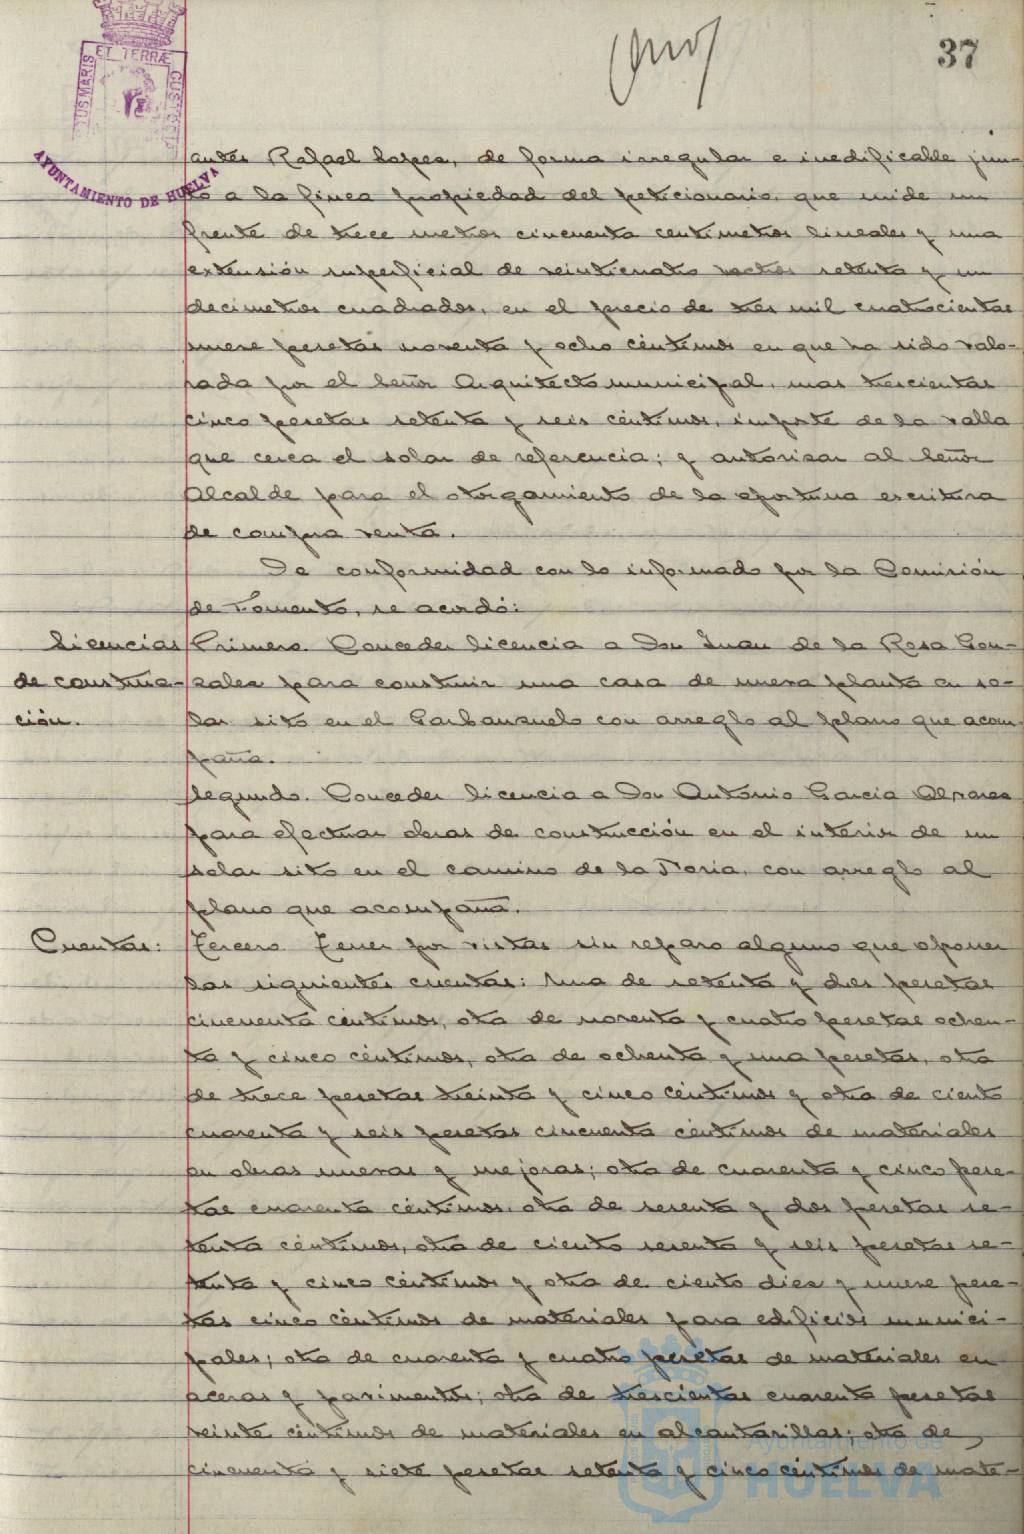 37
ET TERRÆ
AYUNTAMIENTO DE HUELVA
antes Rafael Lopez, de forma irregular e inedificable jun-
to a la finca propiedad del peticionario, que mide un
frente de trece metros cincuenta centimetros lineales y una
extensión superficial de veinticuatro metros setenta y un
decimetros cuadrados, en el precio de tres mil cuatrocientas
nueve pesetas noventa y ocho céntimos en que ha sido valo-
rada por el Señor Arquitecto municipal, mas trescientas
cinco pesetas setenta y seis céntimos, importe de la valla
que cerca el solar de referencia; y autorizar al Señor
Alcalde para el otorgamiento de la oportuna escritura
de compra venta.
De conformidad con lo informado por la Comisión
de Fomento, se acordó:
Licencias de construc-ción.
Primero. Conceder licencia a Don Juan de la Rosa Gon-
zalez para construir una casa de nueva planta en so-
lar sito en el Garbanzuelo con arreglo al plano que acom-
paña.
Segundo. Conceder licencia a Don Antonio Garcia Alvarez
para efectuar obras de construcción en el interior de un
solar sito en el camino de la Noria, con arreglo al
plano que acompaña.
Cuentas:
Tercero. Tener por vistas sin reparo alguno que oponer
las siguientes cuentas: Una de setenta y dos pesetas
cincuenta céntimos, otra de noventa y cuatro pesetas ochen-
ta y cinco céntimos, otra de ochenta y una pesetas, otra
de trece pesetas treinta y cinco céntimos y otra de ciento
cuarenta y seis pesetas cincuenta céntimos de materiales
en obras nuevas y mejoras; otra de cuarenta y cinco pese-
tas cuarenta céntimos, otra de sesenta y dos pesetas se-
tenta céntimos, otra de ciento sesenta y seis pesetas se-
tenta y cinco céntimos y otra de ciento diez y nueve pese-
tas cinco céntimos de materiales para edificios munici-
pales; otra de cuarenta y cuatro pesetas de materiales en
aceras y pavimentos; otra de trescientas cuarenta pesetas
veinte céntimos de materiales en alcantarillas; otra de
cincuenta y siete pesetas setenta y cinco céntimos de mate-
Ayuntamiento de
HUELVA